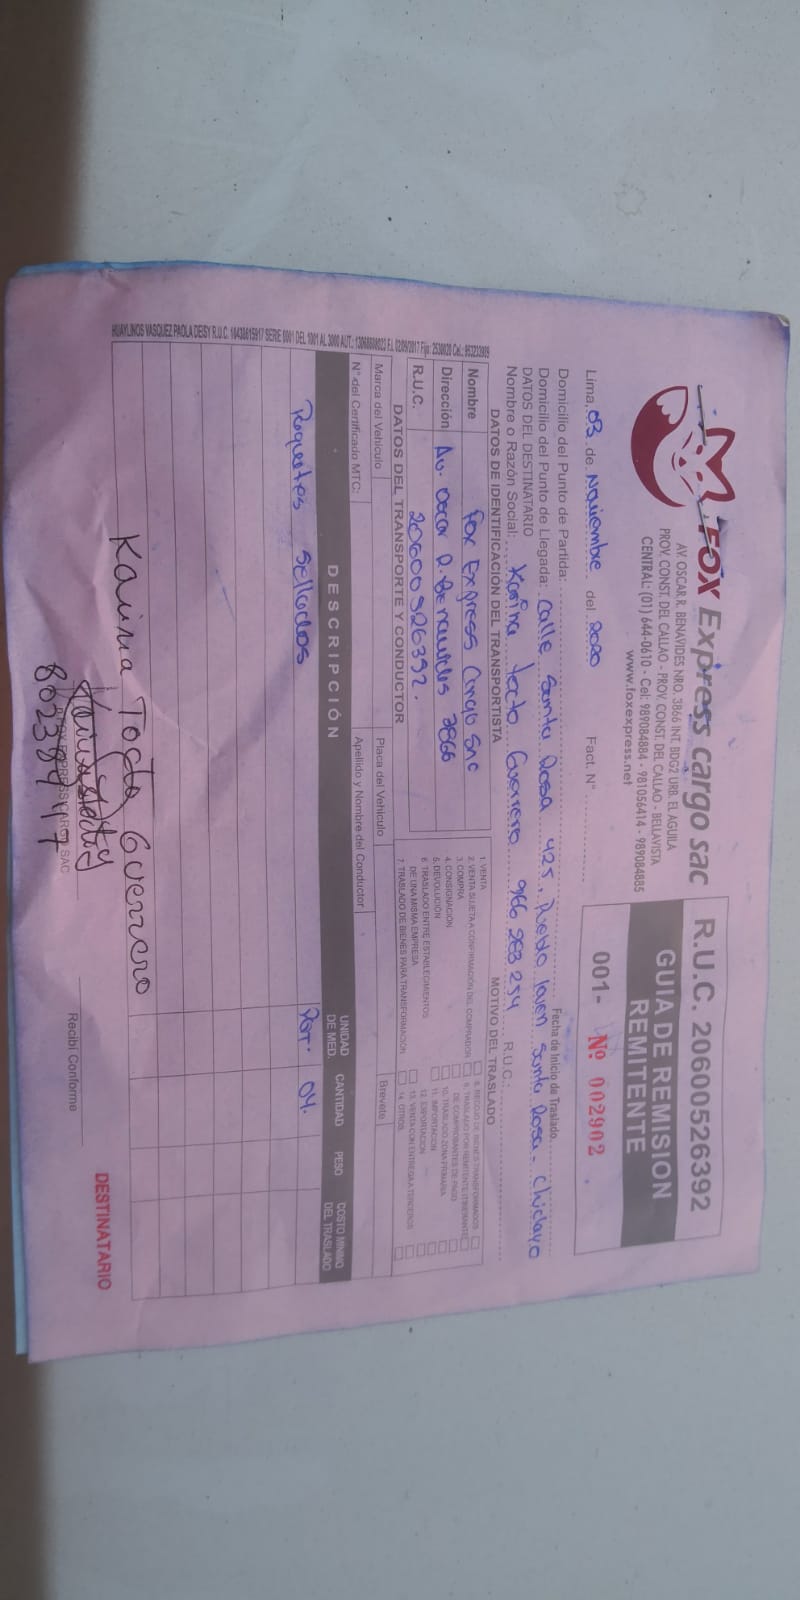 FOX Express cargo sac
AV. OSCAR R. BENAVIDES NRO. 3866 INT. BDG2 URB. EL AGUILA
PROV. CONST. DEL CALLAO - PROV. CONST. DEL CALLAO - BELLAVISTA
CENTRAL: (01) 644-0610 - Cel: 989084884 - 981056414 - 989084885
www.foxexpress.net
R.U.C. 20600526392
GUIA DE REMISION
REMITENTE
001- Nº 002902
Lima, 03 de Noviembre del 2020 Fact. N°
Domicilio del Punto de Partida: Fecha de Inicio de Traslado
Domicilio del Punto de Llegada: Calle Santa Rosa 425, Pueblo Joven Santa Rosa - Chiclayo
DATOS DEL DESTINATARIO
Nombre o Razón Social: Karina Tocto Guerrero 966 283 254 R.U.C.:
DATOS DE IDENTIFICACIÓN DEL TRANSPORTISTA
Nombre Fox Express Cargo Sac
Dirección Av. Oscar R. Benavides 3866
R.U.C. 20600526392.
MOTIVO DEL TRASLADO
1. VENTA
2. VENTA SUJETA A CONFIRMACIÓN DEL COMPRADOR
3. COMPRA
4. CONSIGNACIÓN
5. DEVOLUCIÓN
6. TRASLADO ENTRE ESTABLECIMIENTOS
DE UNA MISMA EMPRESA
7. TRASLADO DE BIENES PARA TRANSFORMACIÓN
8. RECOJO DE BIENES TRANSFORMADOS
9. TRASLADO POR REMITENTE ITINERANTE
DE COMPROBANTES DE PAGO
10. TRASLADO ZONA PRIMARIA
11. IMPORTACION
12. EXPORTACION
13. VENTA CON ENTREGA A TERCEROS
14. OTROS
DATOS DEL TRANSPORTE Y CONDUCTOR
Marca del Vehículo Placa del Vehículo Brevete
N° del Certificado MTC: Apellido y Nombre del Conductor
DESCRIPCIÓN UNIDAD DE MED. CANTIDAD PESO COSTO MINIMO DEL TRASLADO
Paquetes Sellados 04.
Karina Tocto Guerrero
FOX EXPRESS CARGO SAC
Recibí Conforme
DESTINATARIO